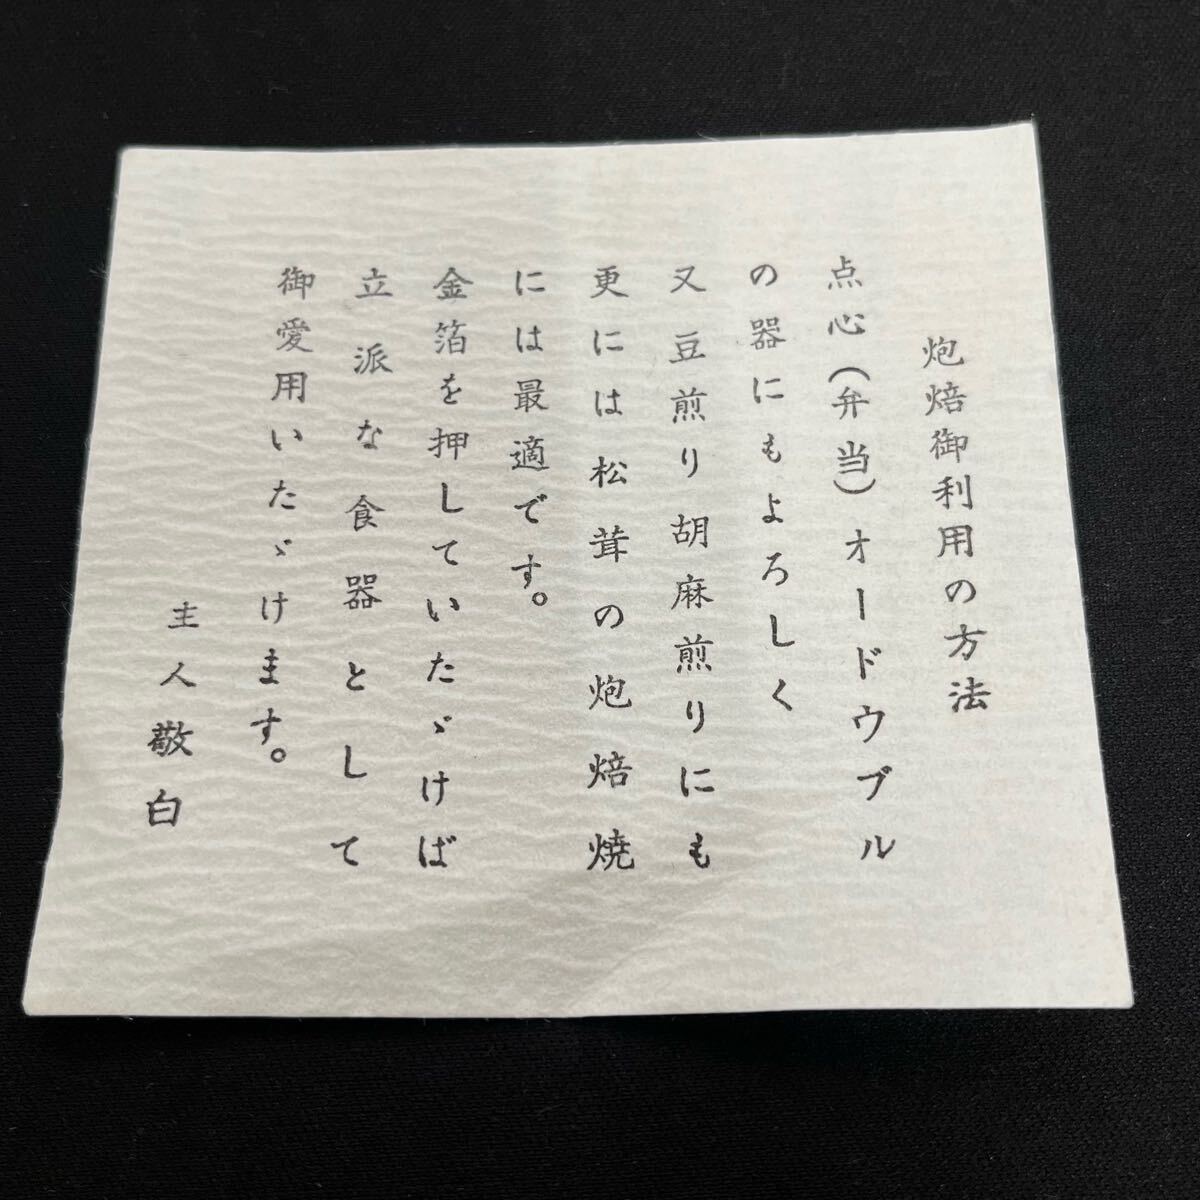 炮焙御利用の方法
点心(弁当)オードウブル
の器にもよろしく
又豆煎り胡麻煎りにも
更には松茸の炮焙焼
には最適です。
金箔を押していたゞけば
立派な食器として
御愛用いたゞけます。
主人敬白